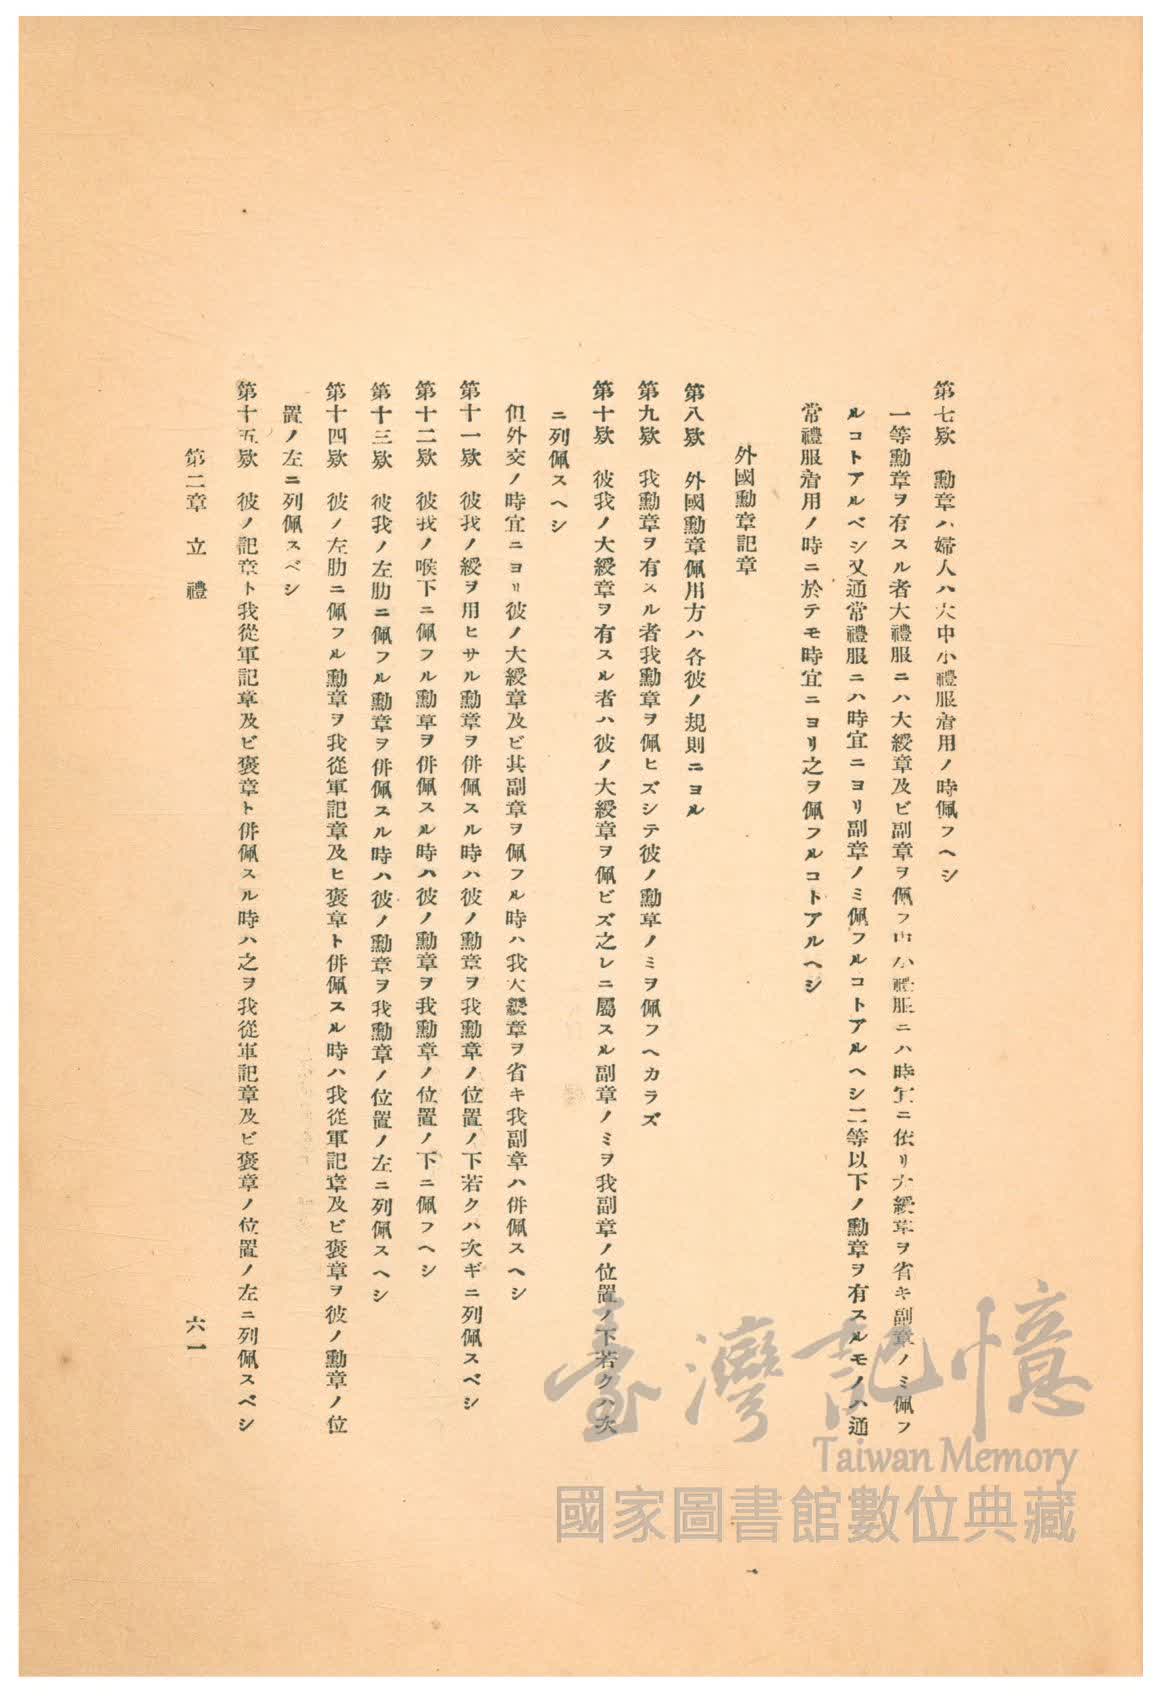 第七欵　勳章ハ婦人ハ大中小禮服着用ノ時佩フヘシ
一等勳章ヲ有スル者大禮服ニハ大綬章及ビ副章ヲ佩フ中小禮服ニハ時宜ニ依リ大綬章ヲ省キ副章ノミ佩フ
ルコトアルベシ又通常禮服ニハ時宜ニヨリ副章ノミ佩フルコトアルヘシ二等以下ノ勳章ヲ有スルモノハ通
常禮服着用ノ時ニ於テモ時宜ニヨリ之ヲ佩フルコトアルヘシ
外國勳章記章
第八欵　外國勳章佩用方ハ各彼ノ規則ニヨル
第九欵　我勳章ヲ有スル者我勳章ヲ佩ヒズシテ彼ノ勳章ノミヲ佩フヘカラズ
第十欵　彼我ノ大綬章ヲ有スル者ハ彼ノ大綬章ヲ佩ビズ之レニ屬スル副章ノミヲ我副章ノ位置ノ下若クハ次
ニ列佩スヘシ
但外交ノ時宜ニヨリ彼ノ大綬章及ビ其副章ヲ佩フル時ハ我大綬章ヲ省キ我副章ハ併佩スヘシ
第十一欵　彼我ノ綬ヲ用ヒサル勳章ヲ併佩スル時ハ彼ノ勳章ヲ我勳章ノ位置ノ下若クハ次ギニ列佩スベシ
第十二欵　彼我ノ喉下ニ佩フル勳章ヲ併佩スル時ハ彼ノ勳章ヲ我勳章ノ位置ノ下ニ佩フヘシ
第十三欵　彼我ノ左肋ニ佩フル勳章ヲ併佩スル時ハ彼ノ勳章ヲ我勳章ノ位置ノ左ニ列佩スヘシ
第十四欵　彼ノ左肋ニ佩フル勳章ヲ我從軍記章及ヒ褒章ト併佩スル時ハ我從軍記章及ビ褒章ヲ彼ノ勳章ノ位
置ノ左ニ列佩スベシ
第十五欵　彼ノ記章ト我從軍記章及ビ褒章ト併佩スル時ハ之ヲ我從軍記章及ビ褒章ノ位置ノ左ニ列佩スベシ
第二章　立　禮　六一
臺灣記憶
Taiwan Memory
國家圖書館數位典藏